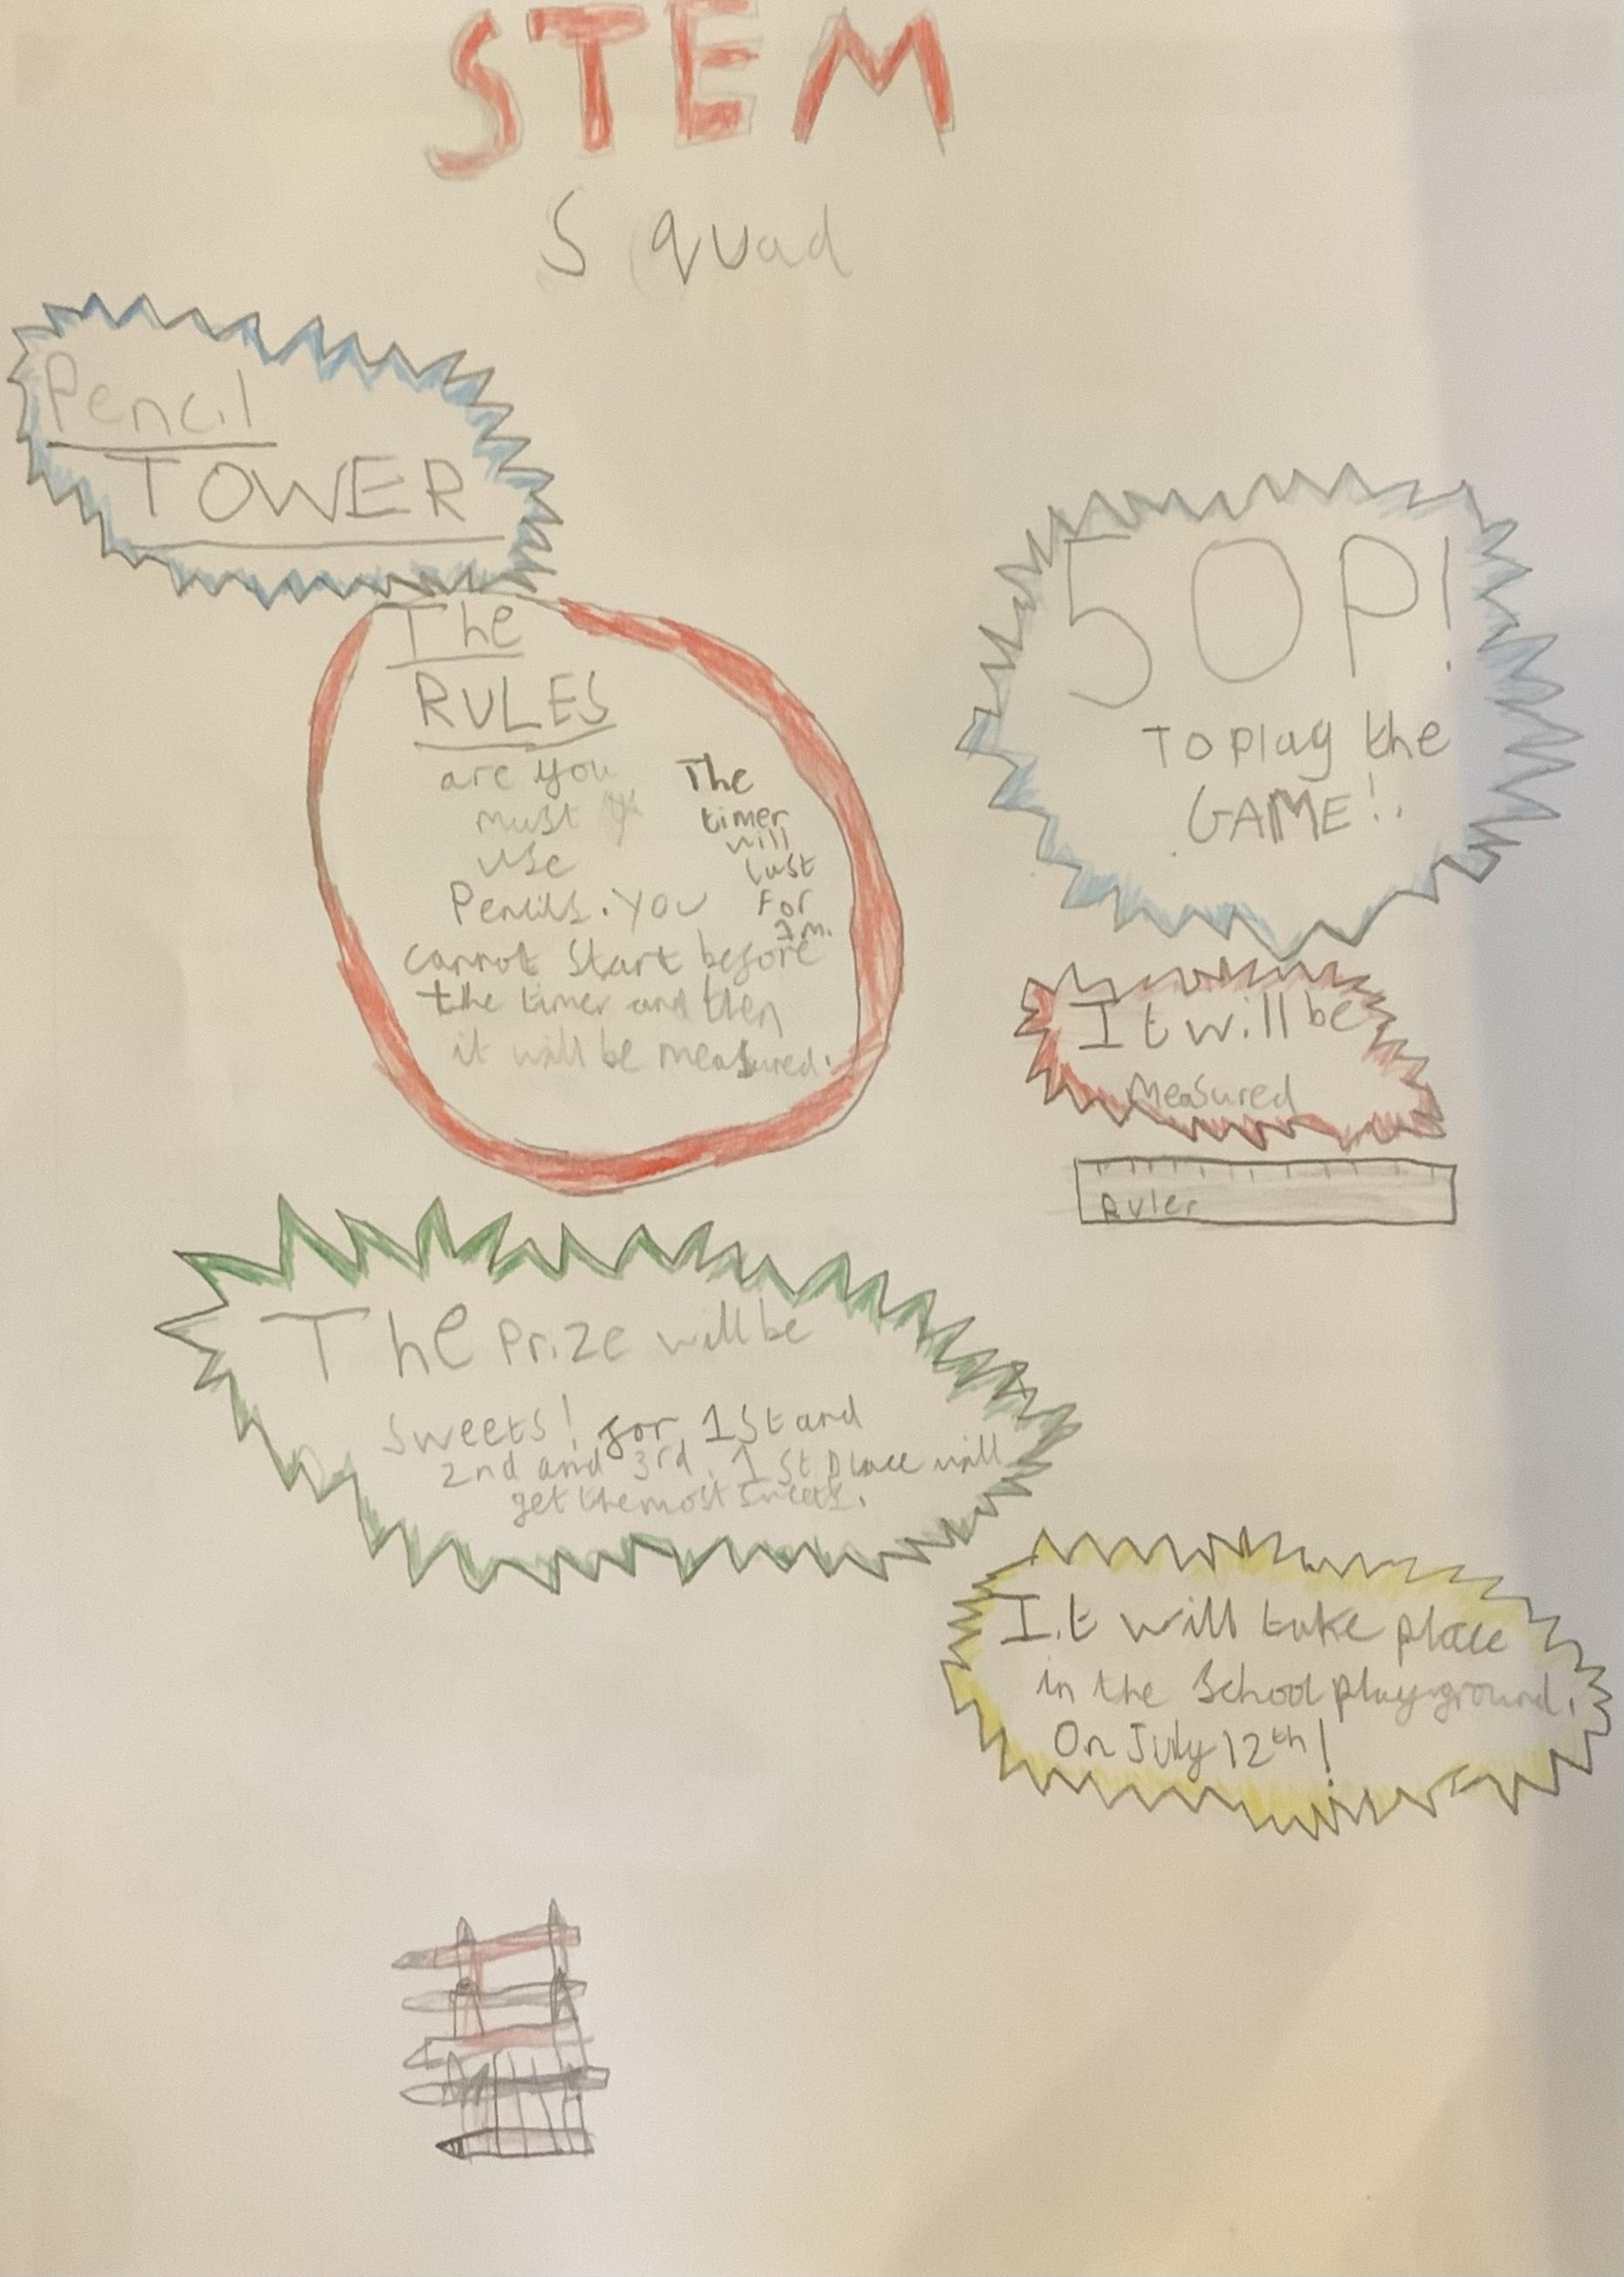 STEM
Squad
Pencil
TOWER
The
RULES
are you
must
use
Pencils. You
cannot start before
the timer and then
it will be measured.
The
timer
will
last
For
1m.
50P!
To play the
GAME!
It will be
measured
Ruler
The Prize will be
Sweets! for 1st and
2nd and 3rd. 1st place will
get the most sweets.
It will take place
in the School playground.
On July 12th!